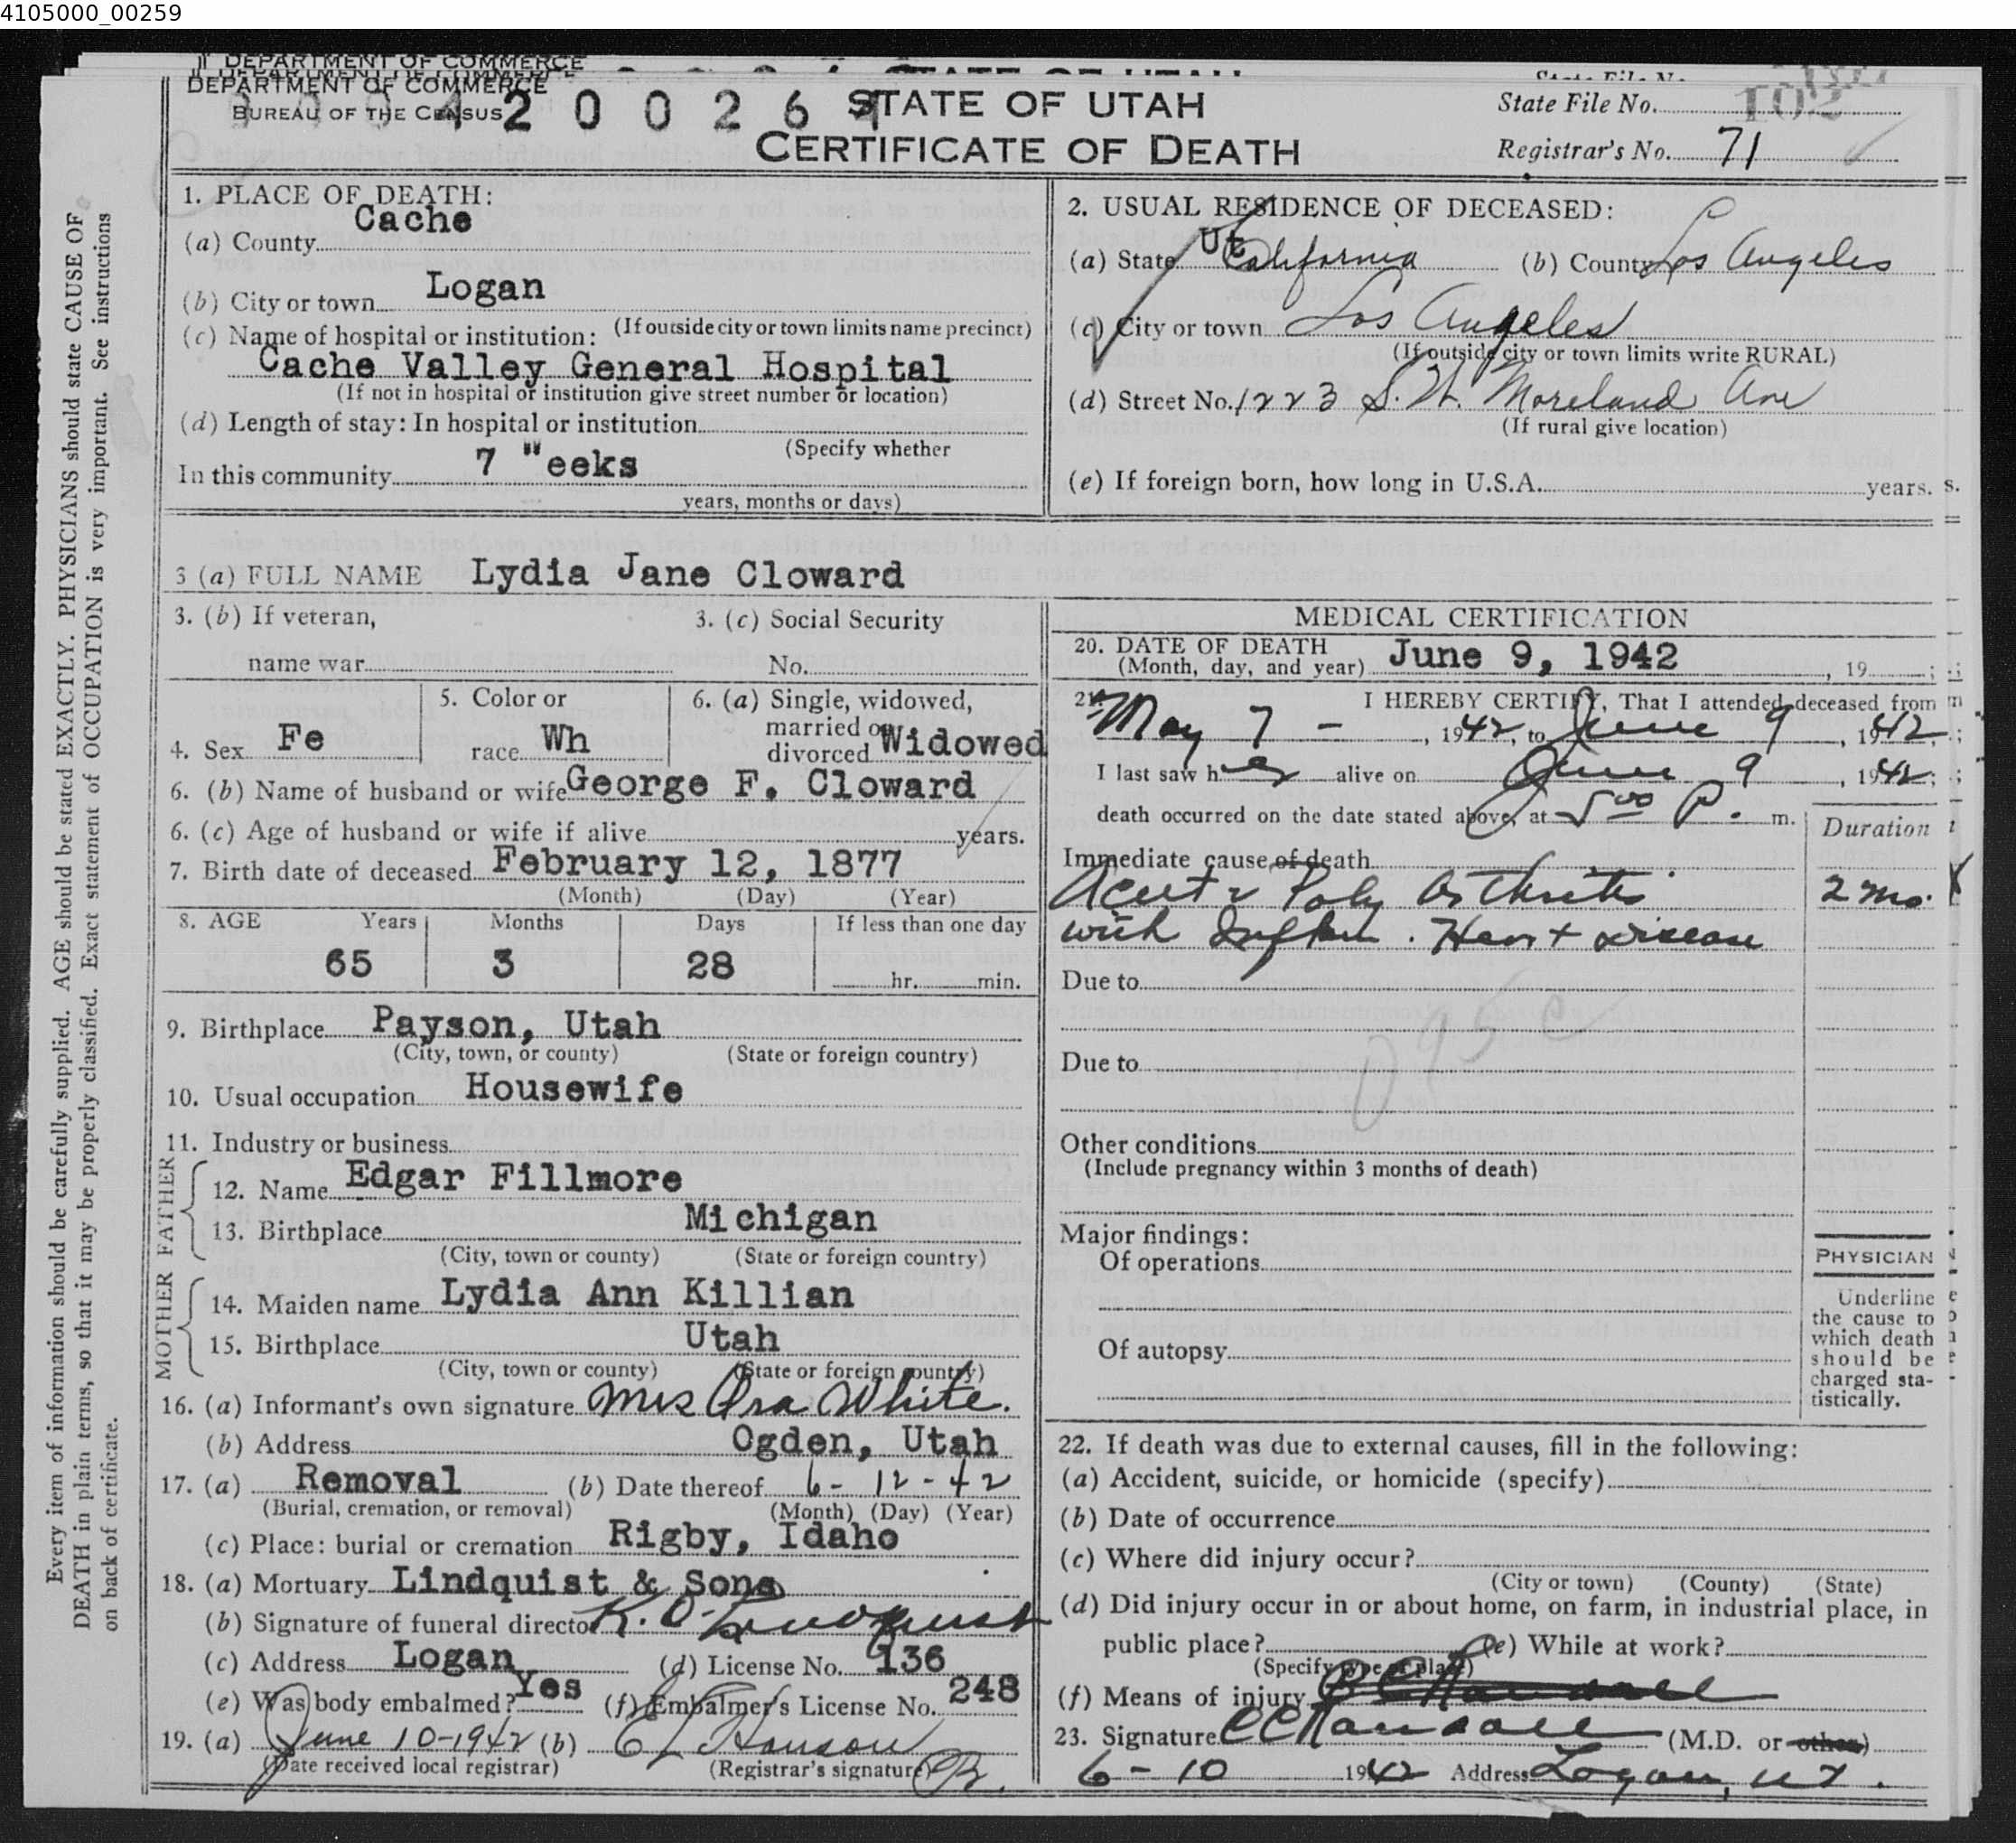 4105000_00259
DEPARTMENT OF COMMERCE
DEPARTMENT OF COMMERCE
BUREAU OF THE CENSUS
STATE OF UTAH
CERTIFICATE OF DEATH
State File No. 102
Registrar's No. 71
Every item of information should be carefully supplied. AGE should be stated EXACTLY. PHYSICIANS should state CAUSE OF
DEATH in plain terms, so that it may be properly classified. Exact statement of OCCUPATION is very important. See instructions
on back of certificate.
1. PLACE OF DEATH:
(a) County Cache
(b) City or town Logan
(If outside city or town limits name precinct)
(c) Name of hospital or institution:
Cache Valley General Hospital
(If not in hospital or institution give street number or location)
(d) Length of stay: In hospital or institution
(Specify whether
In this community 7 "eeks
years, months or days)
2. USUAL RESIDENCE OF DECEASED:
(a) State Ut California (b) County Los Angeles
(c) City or town Los Angeles
(If outside city or town limits write RURAL)
(d) Street No. 1223 S. W. Moreland Ave
(If rural give location)
(e) If foreign born, how long in U.S.A. years.
3 (a) FULL NAME Lydia Jane Cloward
3. (b) If veteran,
name war
3. (c) Social Security
No.
4. Sex Fe
5. Color or
race Wh
6. (a) Single, widowed,
married or
divorced Widowed
6. (b) Name of husband or wife George F. Cloward
6. (c) Age of husband or wife if alive years.
7. Birth date of deceased February 12, 1877
(Month) (Day) (Year)
8. AGE Years Months Days If less than one day
65 3 28 hr. min.
9. Birthplace Payson, Utah
(City, town, or county) (State or foreign country)
10. Usual occupation Housewife
11. Industry or business
FATHER
12. Name Edgar Fillmore
13. Birthplace Michigan
(City, town or county) (State or foreign country)
MOTHER
14. Maiden name Lydia Ann Killian
15. Birthplace Utah
(City, town or county) (State or foreign country)
16. (a) Informant's own signature Mrs Ora White.
(b) Address Ogden, Utah
17. (a) Removal (b) Date thereof 6-12-42
(Burial, cremation, or removal) (Month) (Day) (Year)
(c) Place: burial or cremation Rigby, Idaho
18. (a) Mortuary Lindquist & Sons
(b) Signature of funeral director K. O. Lindquist
(c) Address Logan (d) License No. 136
(e) Was body embalmed? Yes (f) Embalmer's License No. 248
19. (a) June 10-1942 (b) Hanson
(Date received local registrar) (Registrar's signature)
MEDICAL CERTIFICATION
20. DATE OF DEATH
(Month, day, and year) June 9, 1942, 19
21. I HEREBY CERTIFY, That I attended deceased from
May 7 -, 1942, to June 9, 1942;
I last saw her alive on June 9, 1942;
death occurred on the date stated above, at 5 00 P. m.
Duration
Immediate cause of death
Acute Poly Arthritis 2 mo.
with Inflam. Heart Disease
Due to
095c
Due to
Other conditions
(Include pregnancy within 3 months of death)
Major findings:
Of operations
Of autopsy
PHYSICIAN
Underline
the cause to
which death
should be
charged sta-
tistically.
22. If death was due to external causes, fill in the following:
(a) Accident, suicide, or homicide (specify)
(b) Date of occurrence
(c) Where did injury occur?
(City or town) (County) (State)
(d) Did injury occur in or about home, on farm, in industrial place, in
public place? (e) While at work?
(Specify type of place)
(f) Means of injury
23. Signature C C Randall (M.D. or other)
6-10 1942 Address Logan, UT.